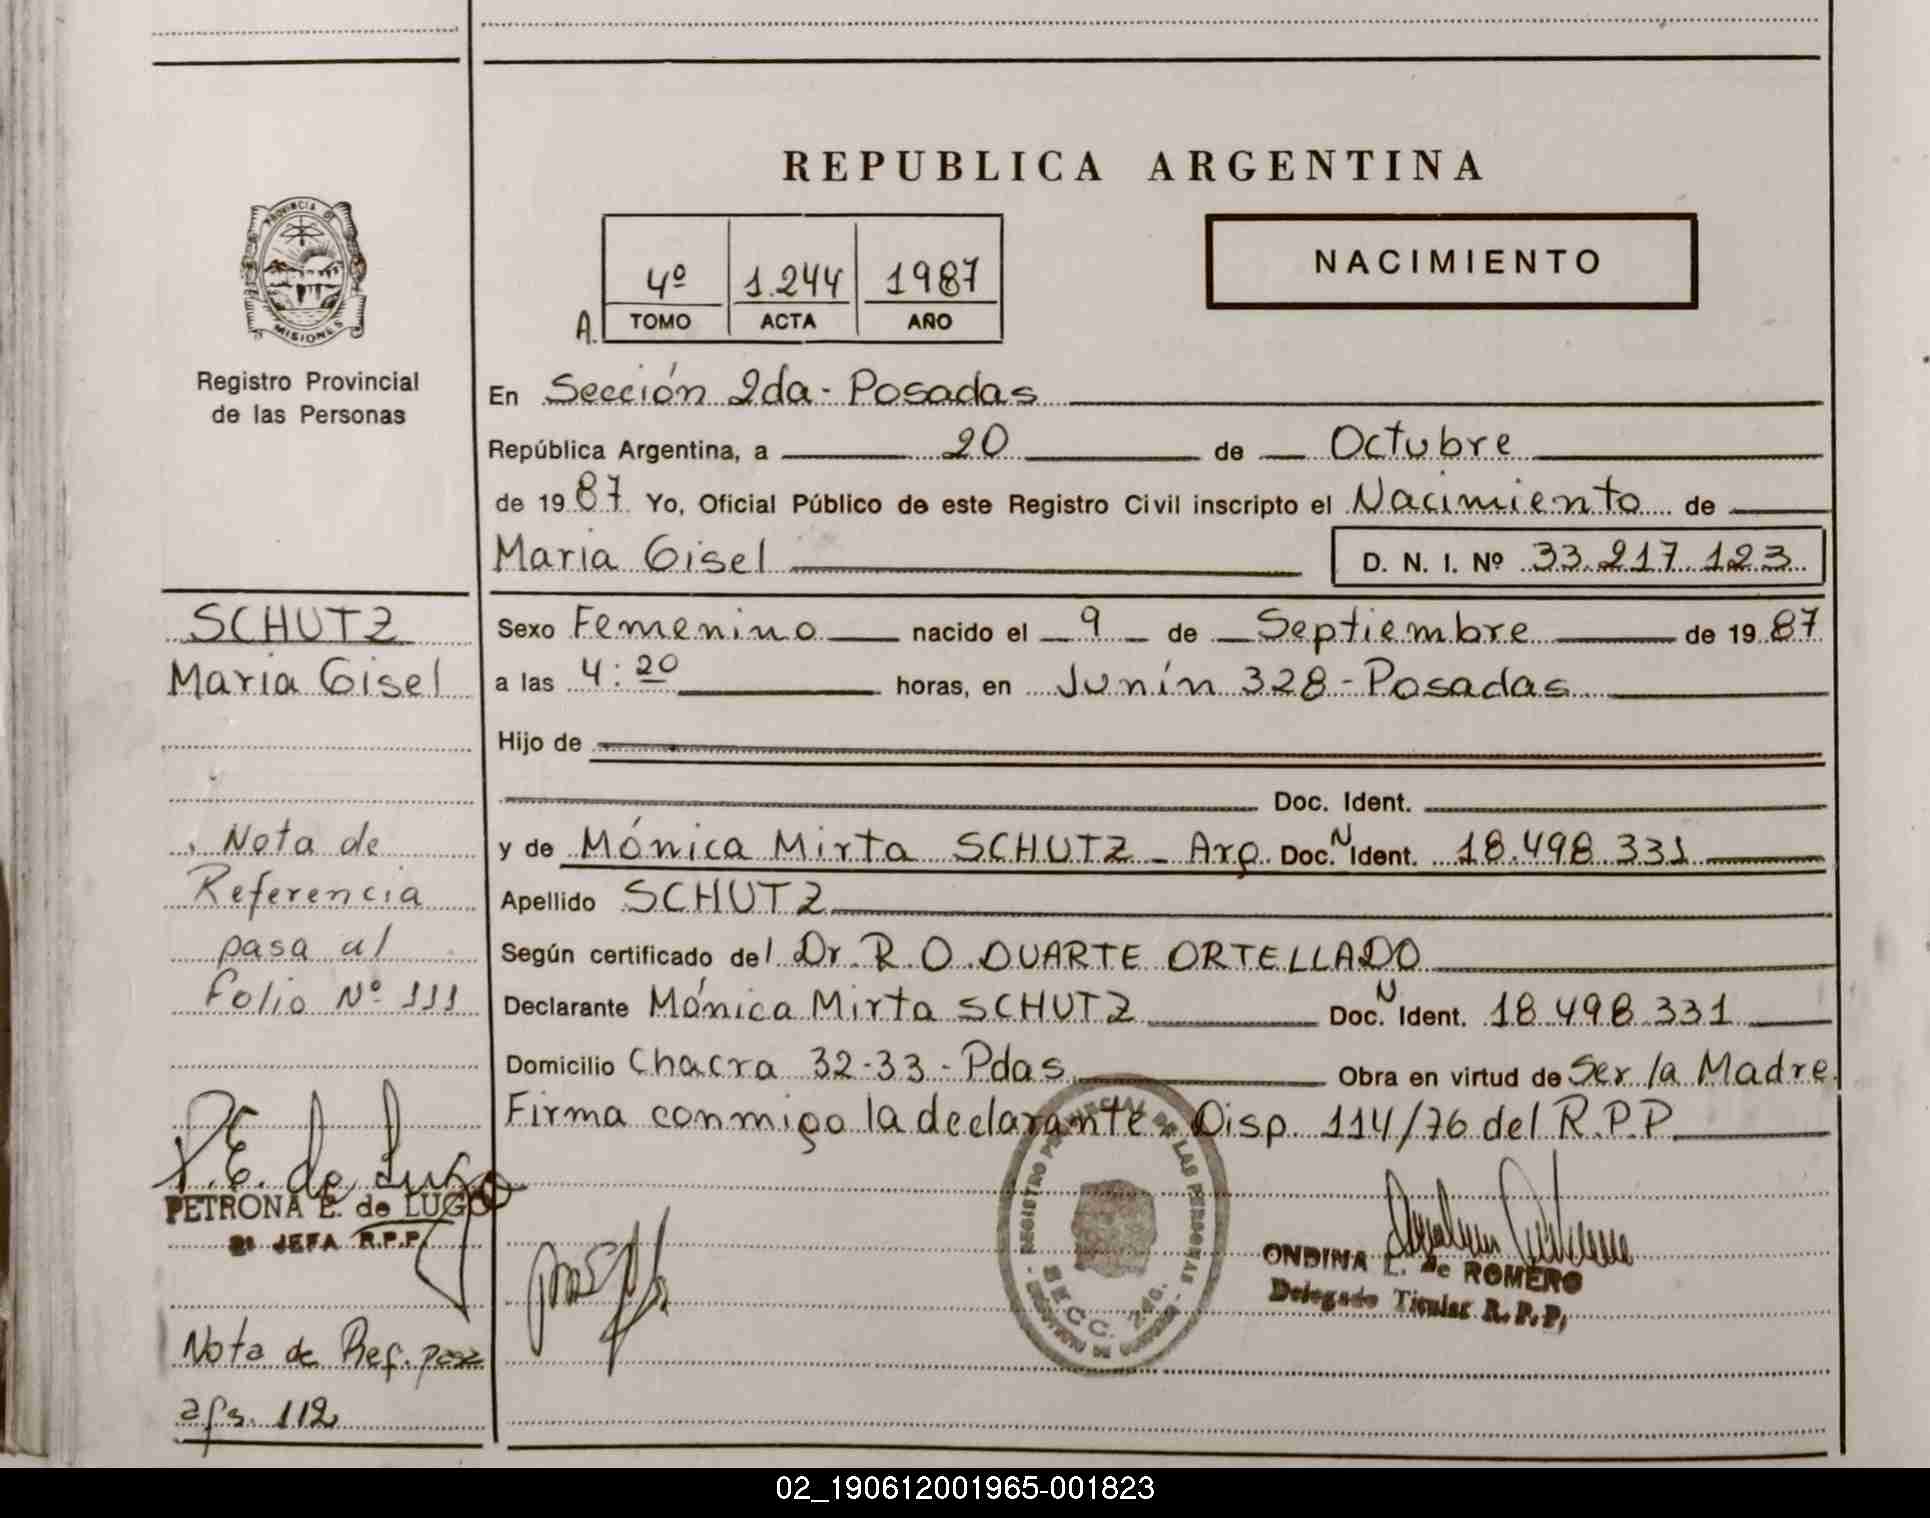 REPUBLICA ARGENTINA
PROVINCIA DE
MISIONES
Registro Provincial
de las Personas
4º 1.244 1987
A. TOMO ACTA AÑO
NACIMIENTO
En Sección 2da - Posadas
República Argentina, a 20 de Octubre
de 1987 Yo, Oficial Público de este Registro Civil inscripto el Nacimiento de
Maria Gisel D. N. I. Nº 33.217.123
SCHUTZ
Maria Gisel
Sexo Femenino nacido el 9 de Septiembre de 1987
a las 4:20 horas, en Junín 328 - Posadas
Hijo de
Doc. Ident.
y de Mónica Mirta SCHUTZ - Arg. Doc. N Ident. 18.498.331
Apellido SCHUTZ
Según certificado del Dr. R. O. DUARTE ORTELLADO
Declarante Mónica Mirta SCHUTZ Doc. N Ident. 18.498.331
Domicilio Chacra 32-33 - Pdas Obra en virtud de Ser la Madre
Firma conmigo la declarante. Disp. 114/76 del R.P.P.
Nota de
Referencia
pasa al
Folio Nº 111
P.E. de Lugo
PETRONA E. de LUGO
JEFA R.P.P.
Nota de Ref. pasa
a fs. 112
REGISTRO PROVINCIAL DE LAS PERSONAS
SECC. 2da.
ONDINA L. de ROMERO
Delegado Titular R.P.P.
02_190612001965-001823